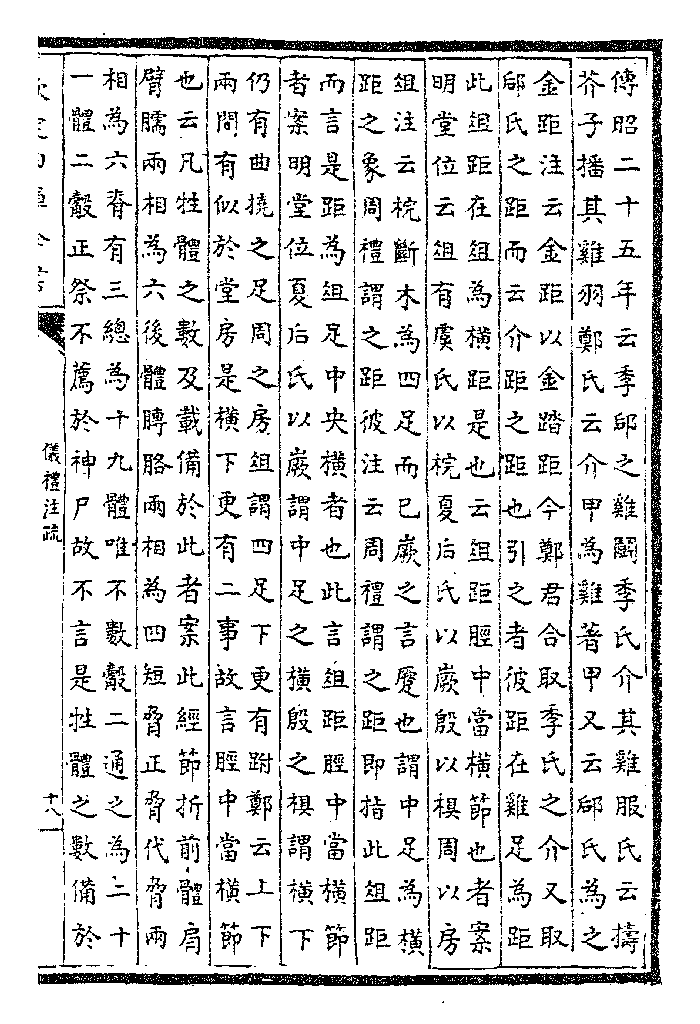 傳昭二十五年云季郈之雞鬭季氏介其雞服氏云擣
芥子播其雞羽鄭氏云介甲為雞著甲又云郈氏為之
金距注云金距以金踏距今鄭君合取季氏之介又取
郈氏之距而云介距之距也引之者彼距在雞足為距
此俎距在俎為橫距是也云俎距脛中當橫節也者案
明堂位云俎有虞氏以梡夏后氏以嶡殷以椇周以房
俎注云梡斷木為四足而已嶡之言蹷也謂中足為橫
距之象周禮謂之距彼注云周禮謂之距即指此俎距
而言是距為俎足中央橫者也此言俎距脛中當橫節
者案明堂位夏后氏以嶡謂中足之橫殷之椇謂橫下
仍有曲撓之足周之房俎謂四足下更有跗鄭云上下
兩間有似於堂房是橫下更有二事故言脛中當橫節
也云凡牲體之數及載備於此者案此經節折前體肩
臂臑兩相為六後體膞胳兩相為四短脅正脅代脅兩
相為六脊有三總為十九體唯不數觳二通之為二十
一體二觳正祭不薦於神尸故不言是牲體之數備於
欽定四庫全書
儀禮注疏
十八